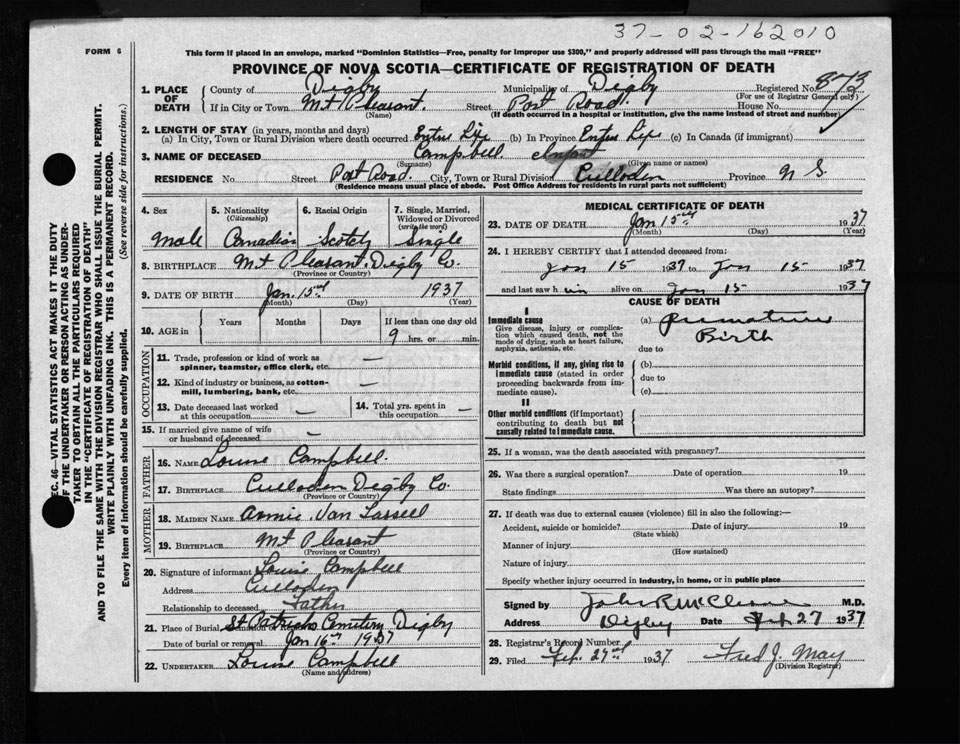 37-02-162010
FORM 6
This form if placed in an envelope, marked "Dominion Statistics—Free, penalty for improper use $300," and properly addressed will pass through the mail "FREE"
PROVINCE OF NOVA SCOTIA—CERTIFICATE OF REGISTRATION OF DEATH
1. PLACE OF DEATH County of Digby Municipality of Digby Registered No. 873
(For use of Registrar General only)
If in City or Town Mt Pleasant. Street Post Road. House No.
(Name) (If death occurred in a hospital or institution, give the name instead of street and number)
2. LENGTH OF STAY (in years, months and days)
(a) In City, Town or Rural Division where death occurred Entire Life (b) In Province Entire Life (c) In Canada (if immigrant)
3. NAME OF DECEASED Campbell Infant
(Surname) (Given name or names)
RESIDENCE No. Street Post Road. City, Town or Rural Division Culloden Province N S.
(Residence means usual place of abode. Post Office Address for residents in rural parts not sufficient)
4. Sex 5. Nationality (Citizenship) 6. Racial Origin 7. Single, Married, Widowed or Divorced (write the word)
Male Canadian Scotch Single
8. BIRTHPLACE Mt Pleasant, Digby Co.
(Province or Country)
9. DATE OF BIRTH Jan. 15 1937
(Month) (Day) (Year)
10. AGE in Years Months Days If less than one day old
9 hrs. or min.
OCCUPATION
11. Trade, profession or kind of work as spinner, teamster, office clerk, etc. —
12. Kind of industry or business, as cotton-mill, lumbering, bank, etc. —
13. Date deceased last worked at this occupation — 14. Total yrs. spent in this occupation —
15. If married give name of wife or husband of deceased —
FATHER
16. NAME Louise Campbell.
17. BIRTHPLACE Culloden Digby Co.
(Province or Country)
MOTHER
18. MAIDEN NAME Annie Van Tassell
19. BIRTHPLACE Mt Pleasant
(Province or Country)
20. Signature of informant Louise Campbell
Address Culloden
Relationship to deceased Father
21. Place of Burial, St Patricks Cemetery Digby
Date of burial or removal Jan 16th 1937
22. UNDERTAKER Louise Campbell
(Name and address)
MEDICAL CERTIFICATE OF DEATH
23. DATE OF DEATH Jan 15 1937
(Month) (Day) (Year)
24. I HEREBY CERTIFY that I attended deceased from:
Jan 15 1937 to Jan 15 1937
and last saw him alive on Jan 15 1937
CAUSE OF DEATH
I
Immediate cause (a) Premature Birth
Give disease, injury or complication which caused death, not the mode of dying, such as heart failure, asphyxia, asthenia, etc.
due to
Morbid conditions, if any, giving rise to immediate cause (stated in order proceeding backwards from immediate cause). (b)
due to
(c)
II
Other morbid conditions (if important) contributing to death but not causally related to immediate cause.
25. If a woman, was the death associated with pregnancy?
26. Was there a surgical operation? Date of operation 19
State findings Was there an autopsy?
27. If death was due to external causes (violence) fill in also the following:—
Accident, suicide or homicide? Date of injury 19
(State which)
Manner of injury
(How sustained)
Nature of injury
Specify whether injury occurred in industry, in home, or in public place
Signed by M.D.
Address Digby Date Feb. 27 1937
28. Registrar's Record Number
29. Filed Feb. 27 1937 Fred J. May
(Division Registrar)
SEC. 46—VITAL STATISTICS ACT MAKES IT THE DUTY
OF THE UNDERTAKER OR PERSON ACTING AS UNDER-
TAKER TO OBTAIN ALL THE PARTICULARS REQUIRED
IN THE "CERTIFICATE OF REGISTRATION OF DEATH"
AND TO FILE THE SAME WITH THE DIVISION REGISTRAR WHO SHALL ISSUE THE BURIAL PERMIT.
WRITE PLAINLY WITH UNFADING INK. THIS IS A PERMANENT RECORD.
Every item of information should be carefully supplied. (See reverse side for instructions.)